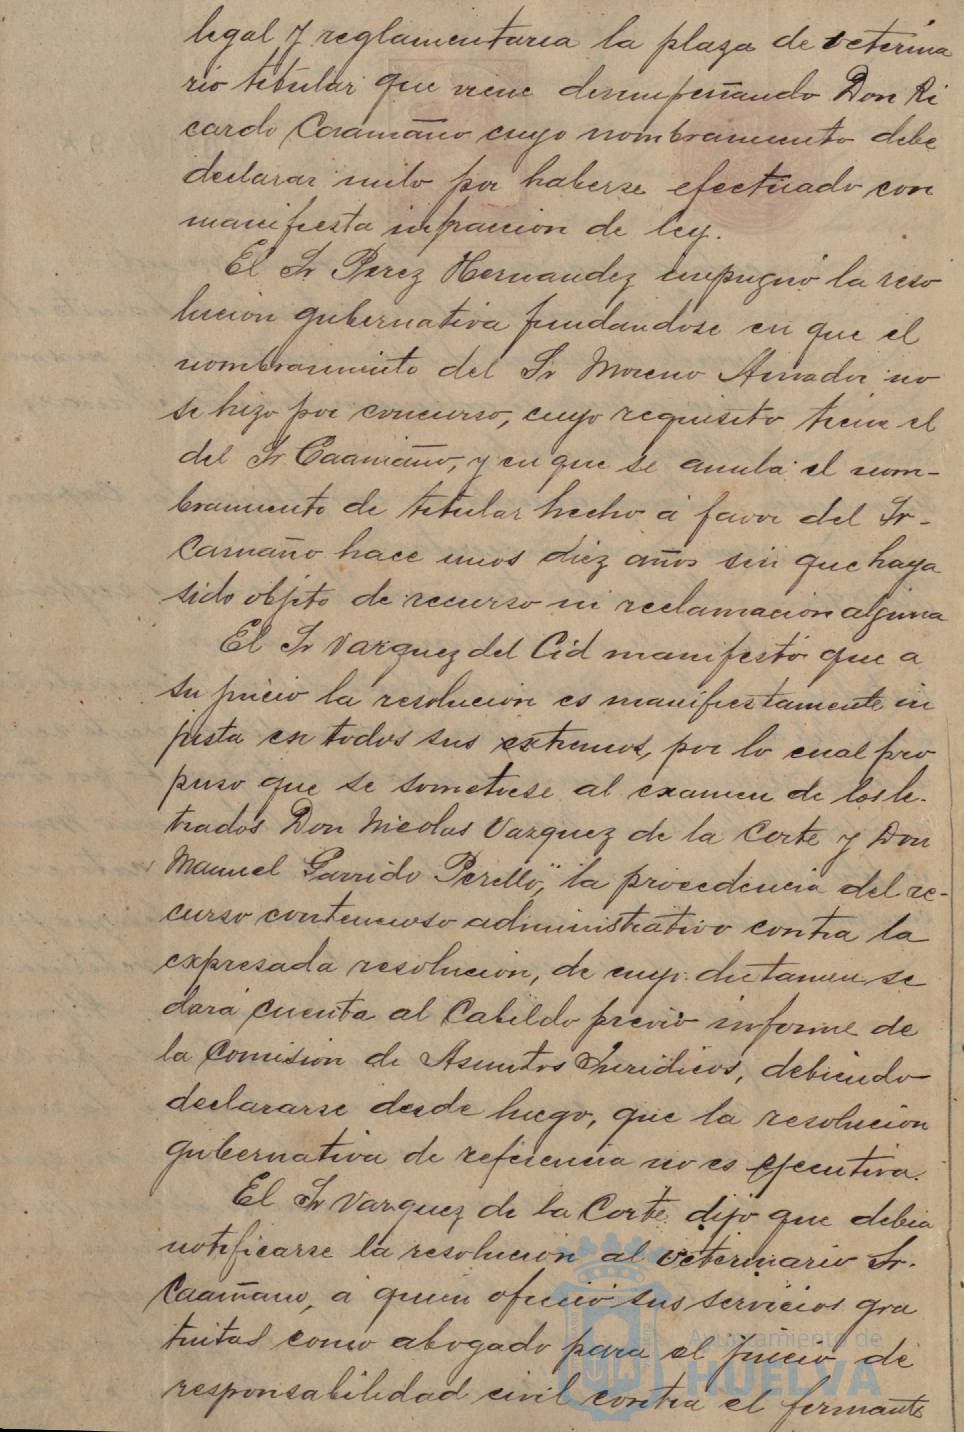 legal y reglamentaria la plaza de veterina
rio titular que viene desempeñando Don Ri
cardo Caamaño cuyo nombramiento debe
declarar nulo por haberse efectuado con
manifiesta infraccion de ley.
El Sr Perez Hernandez impugnó la reso
lucion gubernativa fundandose en que el
nombramiento del Sr Moreno Amador no
se hizo por concurso, cuyo requisito tiene el
del Sr Caamaño, y en que se anula el nom-
bramiento de titular hecho á favor del Sr.
Camaño hace unos diez años sin que haya
sido objeto de recurso ni reclamacion alguna
El Sr Vazquez del Cid manifestó que a
su juicio la resolucion es manifiestamente in
justa en todos sus extremos, por lo cual pro
puso que se sometiese al examen de los le-
trados Don Nicolas Vazquez de la Corte y Don
Manuel Garrido Perelló, la procedencia del re-
curso contencioso administrativo contra la
expresada resolucion, de cuyo dictamen se
dará cuenta al Cabildo previo informe de
la Comision de Asuntos Juridicos, debiendo
declararse desde luego, que la resolucion
gubernativa de referencia no es ejecutiva.
El Sr Vazquez de la Corte dijo que debia
notificarse la resolucion al veterinario Sr.
Caamano, á quien ofreció sus servicios gra
tuitos como abogado para el juicio de
responsabilidad civil contra el firmante
Ayuntamiento de
HUELVA